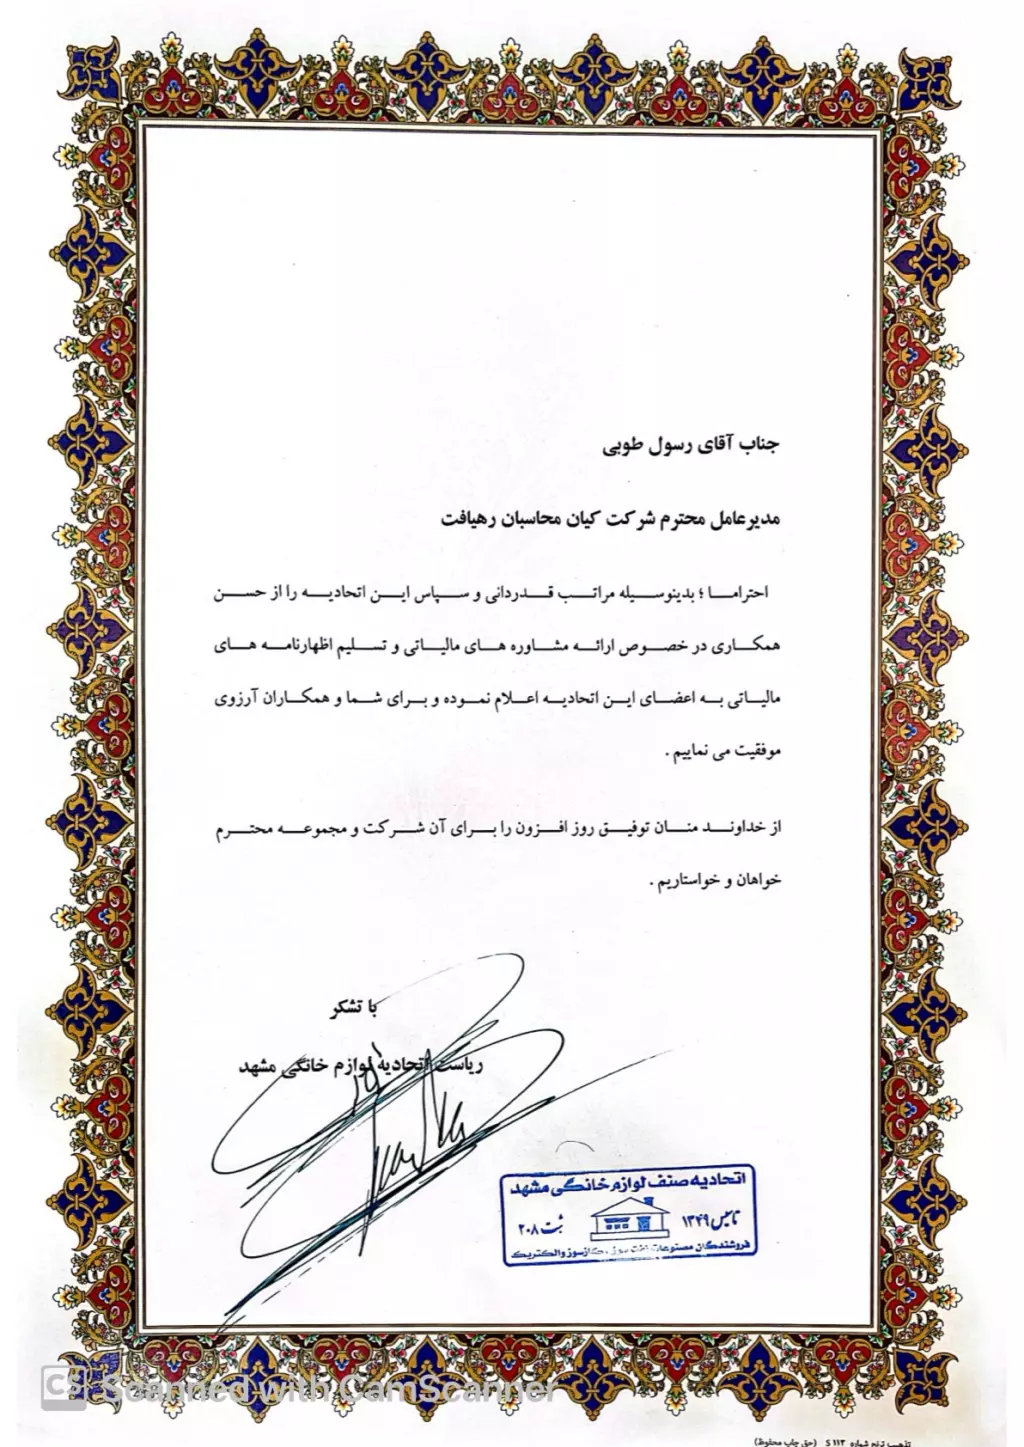 جناب آقای رسول طوبی
مدیرعامل محترم شرکت کیان محاسبان رهیافت
احتراما ؛ بدینوسیله مراتب قدردانی و سپاس این اتحادیه را از حسن
همکاری در خصوص ارائه مشاوره های مالیاتی و تسلیم اظهارنامه های
مالیاتی به اعضای این اتحادیه اعلام نموده و برای شما و همکاران آرزوی
موفقیت می نماییم .
از خداوند منان توفیق روز افزون را برای آن شرکت و مجموعه محترم
خواهان و خواستاریم .
با تشکر
ریاست اتحادیه لوازم خانگی مشهد
اتحادیه صنف لوازم خانگی مشهد
تاسیس ۱۳۴۹
ثبت ۲۰۸
فروشندگان مصنوعات نفت سوز ، گازسوز و الکتریک
CS Scanned with CamScanner
تذهیب ترنم شماره S ۱۱۲ (حق چاپ محفوظ)